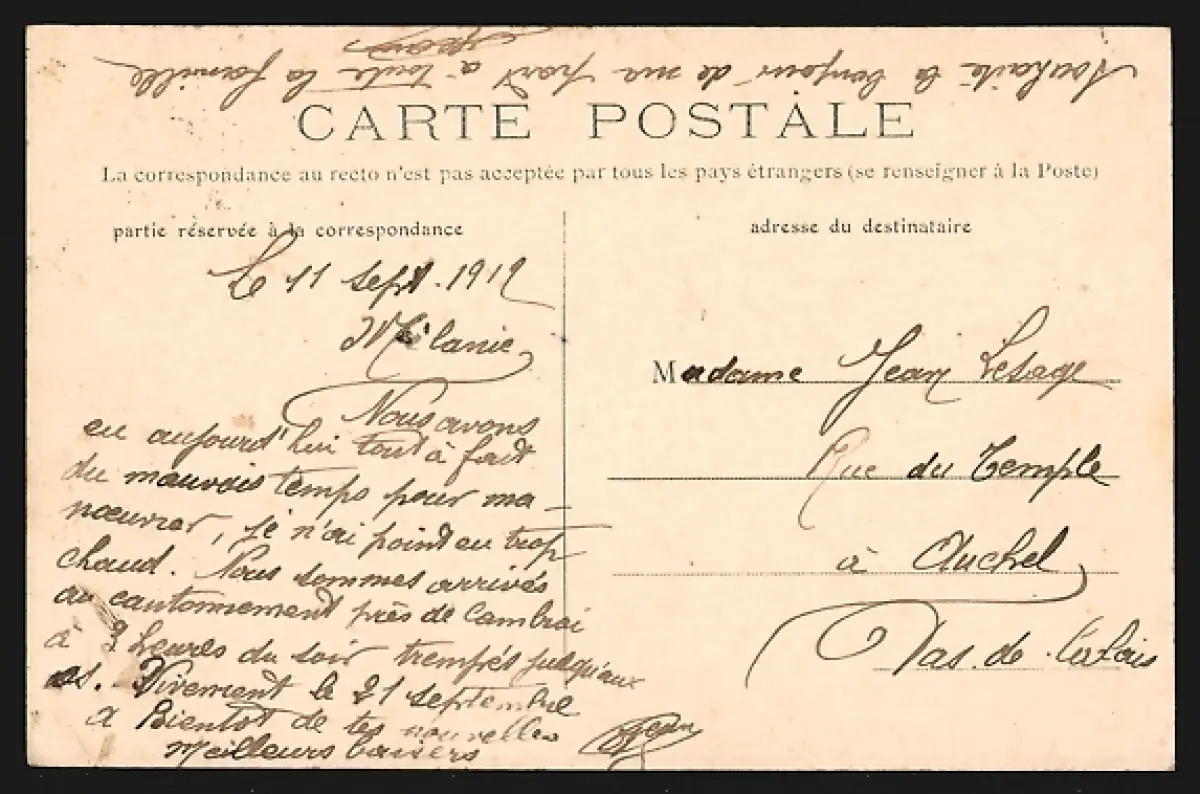 Souhaite le bonjour de ma part à toute la famille
Jean
CARTE POSTALE
La correspondance au recto n'est pas acceptée par tous les pays étrangers (se renseigner à la Poste)
partie réservée à la correspondance
adresse du destinataire
Le 11 Sept. 1912
Mélanie,
Nous avons
eu aujourd'hui tout à fait
du mauvais temps pour ma-
nœuvrer, je n'ai point eu trop
chaud. Nous sommes arrivés
au cantonnement près de Cambrai
à 3 heures du soir trempés jusqu'aux
os. Vivement le 21 septembre
A Bientot de tes nouvelles
Meilleurs baisers
Jean
Madame Jean Lesage
Rue du Temple
à Auchel
Pas-de-Calais